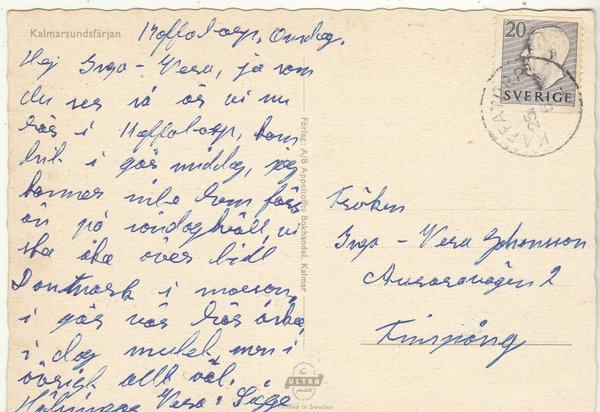 Kalmarsundsfärjan
Onsdag.
Hej Inga - Vera, ja som
du ser så är vi nu
här i
hit i går middag, jag
kommer inte hem förr
än på söndagkväll, vi
ska åka över till
i morgon,
i går var här
i dag mulet men i
övrigt allt väl.
Hälsningar Vera: Sigge
Förlag: A/B Appeltoffts Bokhandel, Kalmar
20
SVERIGE
Fröken
Inga - Vera Johansson
Auroravägen 2
Finspång
ULTRA
Printed in Sweden